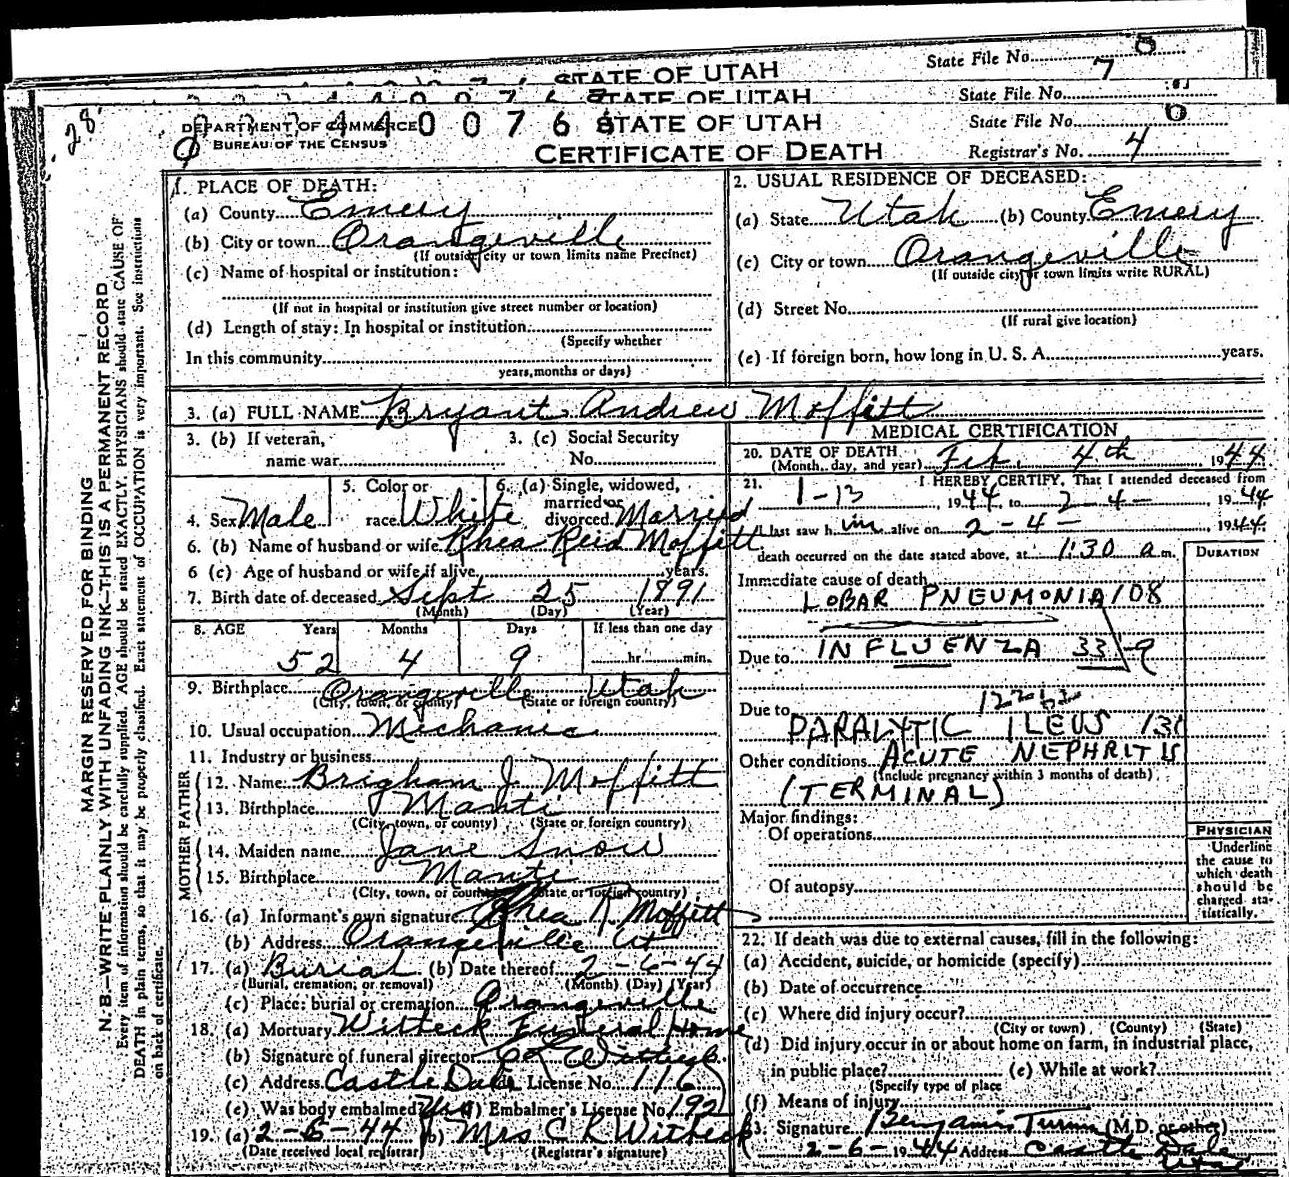 STATE OF UTAH State File No. 7
STATE OF UTAH State File No.
DEPARTMENT OF COMMERCE STATE OF UTAH State File No. 6
BUREAU OF THE CENSUS CERTIFICATE OF DEATH Registrar's No. 4
28
MARGIN RESERVED FOR BINDING
N. B.—WRITE PLAINLY WITH UNFADING INK—THIS IS A PERMANENT RECORD
Every item of information should be carefully supplied. AGE should be stated EXACTLY. PHYSICIANS should state CAUSE OF
DEATH in plain terms, so that it may be properly classified. Exact statement of OCCUPATION is very important. See instructions
on back of certificate.
1. PLACE OF DEATH:
(a) County Emery
(b) City or town Orangeville
(If outside city or town limits name Precinct)
(c) Name of hospital or institution:
(If not in hospital or institution give street number or location)
(d) Length of stay: In hospital or institution:
(Specify whether
In this community
years, months or days)
2. USUAL RESIDENCE OF DECEASED:
(a) State Utah (b) County Emery
(c) City or town Orangeville
(If outside city or town limits write RURAL)
(d) Street No.
(If rural give location)
(e) If foreign born, how long in U. S. A. years.
3. (a) FULL NAME Bryant Andrew Moffitt
3. (b) If veteran, 3. (c) Social Security
name war No.
5. Color or 6. (a) Single, widowed,
married or
4. Sex Male race White divorced Married
6. (b) Name of husband or wife Rhea Reid Moffitt
6 (c) Age of husband or wife if alive years.
7. Birth date of deceased Sept 25 1891
(Month) (Day) (Year)
8. AGE Years Months Days If less than one day
52 4 9 hr. min.
9. Birthplace Orangeville Utah
(City, town, or county) (State or foreign country)
10. Usual occupation Mechanic
11. Industry or business
FATHER
12. Name: Brigham J Moffitt
13. Birthplace Manti
(City, town, or county) (State or foreign country)
MOTHER
14. Maiden name Jane Snow
15. Birthplace Manti
(City, town, or county) (State or foreign country)
16. (a) Informant's own signature Rhea R Moffitt
(b) Address Orangeville Ut
17. (a) Burial (b) Date thereof 2-6-44
(Burial, cremation, or removal) (Month) (Day) (Year)
(c) Place: burial or cremation Orangeville
18. (a) Mortuary Witteck Funeral Home
(b) Signature of funeral director
(c) Address Castle Dale License No. 116
(e) Was body embalmed? Yes Embalmer's License No. 192
19. (a) 2-6-44 (b) Mrs C R Witteck
(Date received local registrar) (Registrar's signature)
MEDICAL CERTIFICATION
20. DATE OF DEATH
(Month, day, and year) Feb. 4th, 1944
21. I HEREBY CERTIFY, That I attended deceased from
1-13, 1944 to 2-4- 1944
I last saw him alive on 2-4- 1944
death occurred on the date stated above, at 1:30 a m.
DURATION
Immediate cause of death
LOBAR PNEUMONIA 108
Due to INFLUENZA 33
Due to
PARALYTIC ILEUS
Other conditions ACUTE NEPHRITIS
(Include pregnancy within 3 months of death)
(TERMINAL)
Major findings:
Of operations
Of autopsy
PHYSICIAN
Underline
the cause to
which death
should be
charged sta-
tistically.
22. If death was due to external causes, fill in the following:
(a) Accident, suicide, or homicide (specify)
(b) Date of occurrence
(c) Where did injury occur?
(City or town) (County) (State)
(d) Did injury occur in or about home on farm, in industrial place,
in public place? (e) While at work?
(Specify type of place
(f) Means of injury
23. Signature Benjamin (M.D. or other)
2-6-1944 Address Castle Dale
Utah